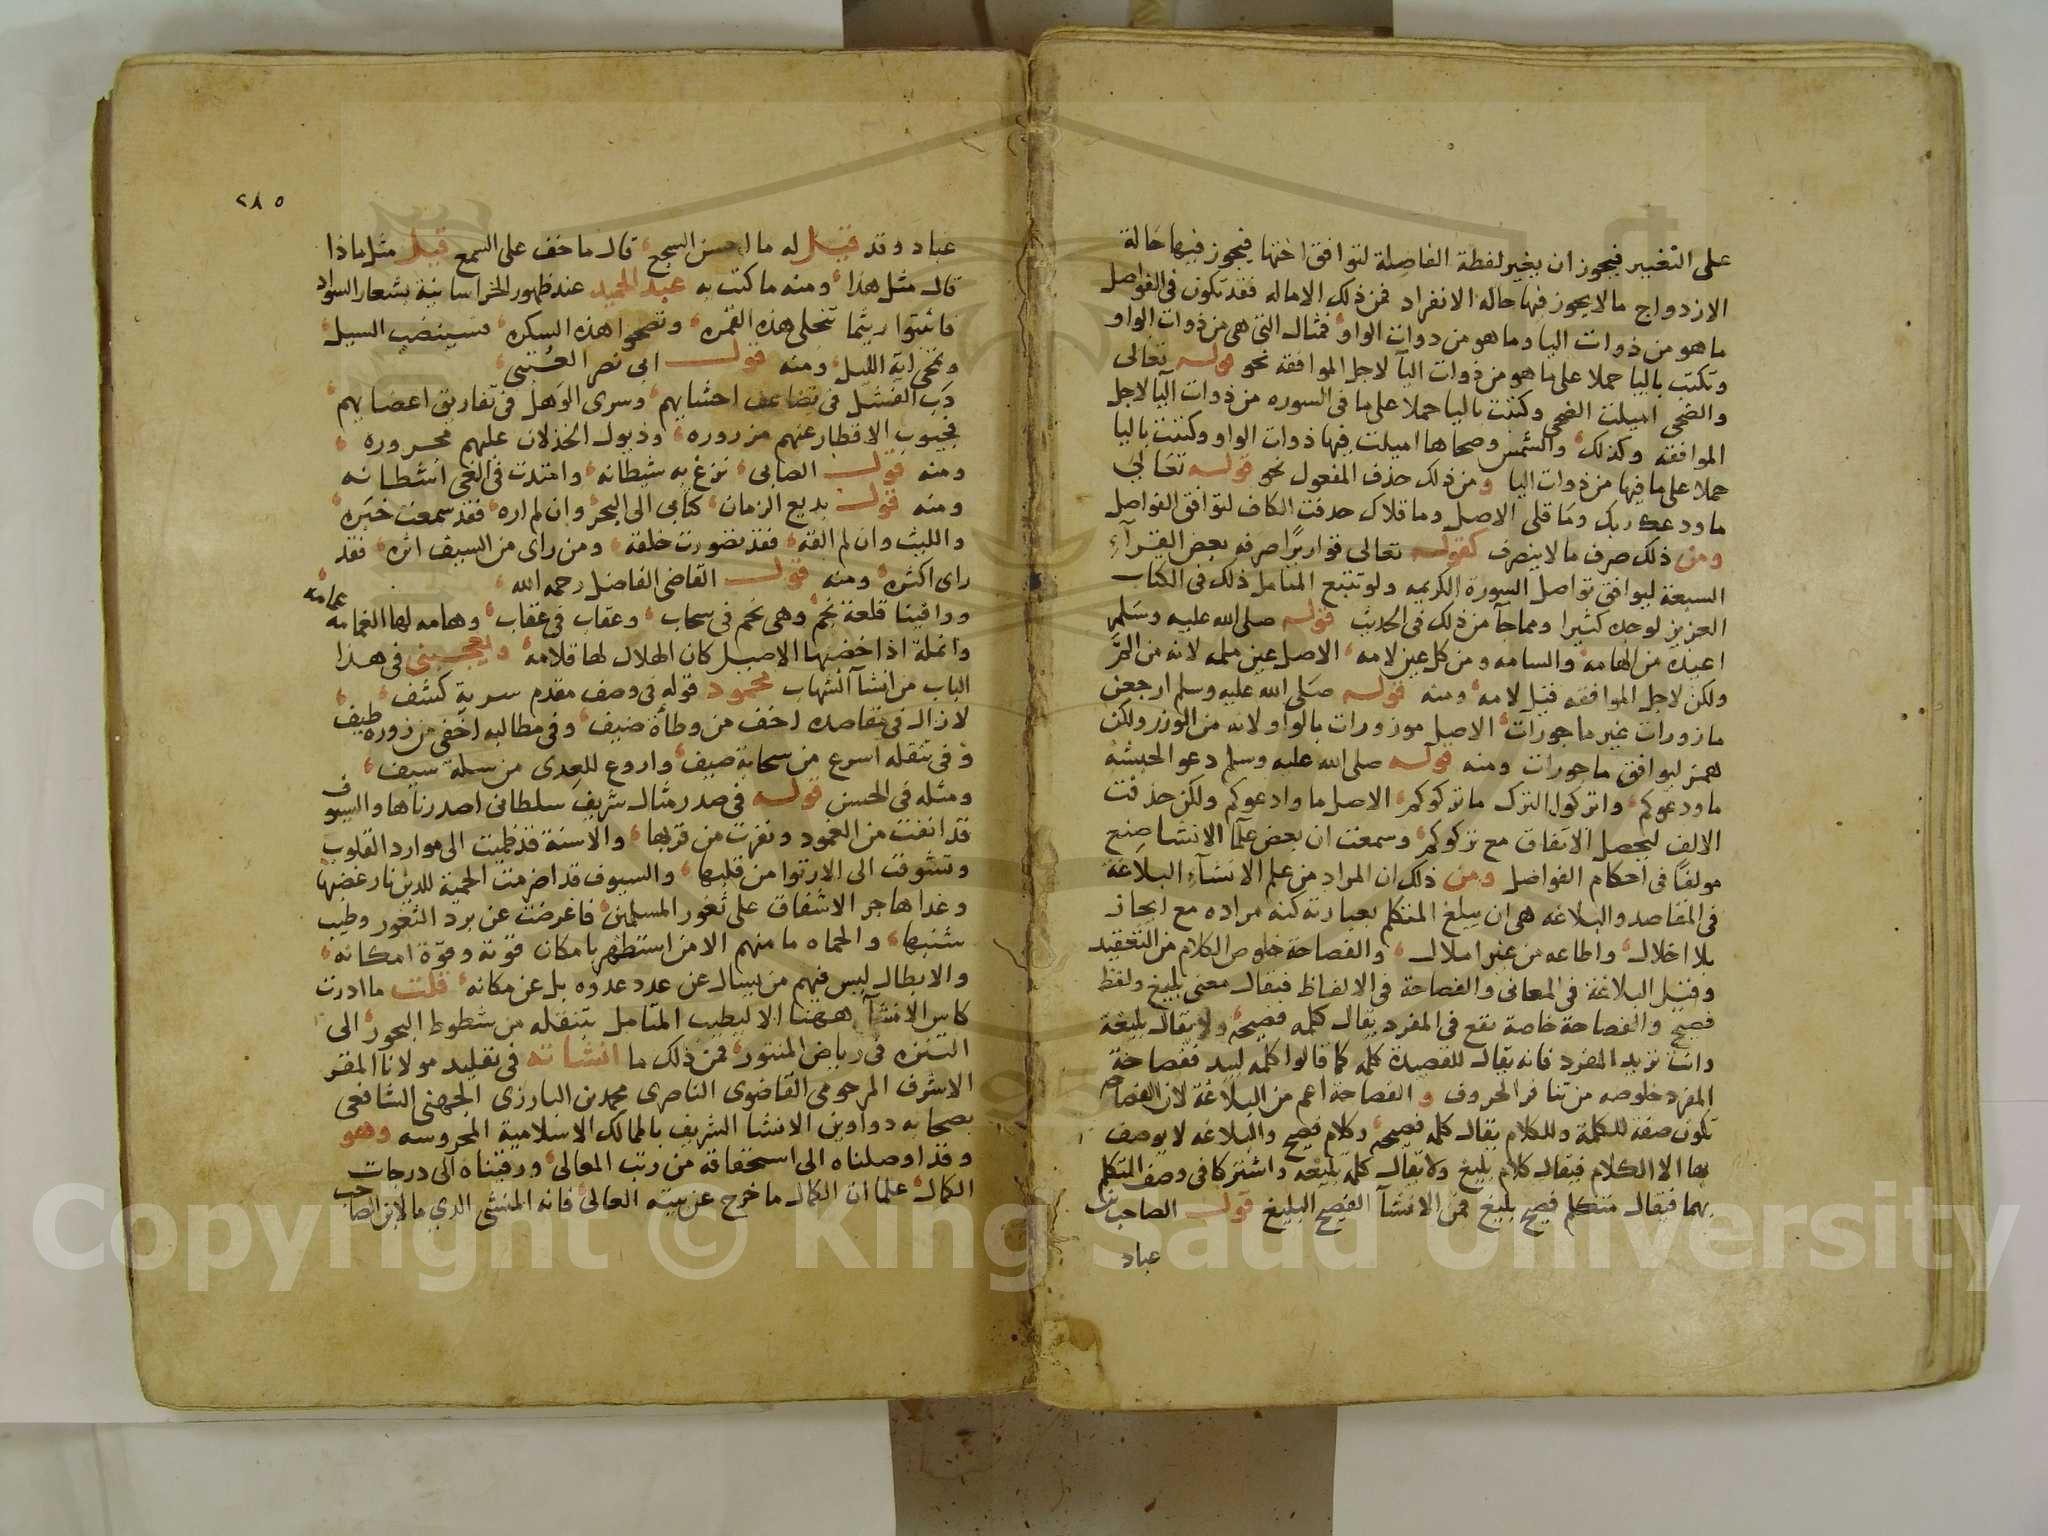 على التغيير فيجوز ان يغير لفظة الفاصلة لتوافق اختها فيجوز فيها حالة
الازدواج مالا يجوز فيها حاله الانفراد فمن ذلك الاماله فقد تكون في الفواصل
ما هو من ذوات اليا وما هو من ذوات الواو فمثال التي هي من ذوات الواو
وتكتب باليا حملا على ما هو من ذوات اليآ لاجل الموافقه نحو قوله تعالى
والضحى اميلت الضحى وكتبت باليا حملا على ما في السوره من ذوات اليآ لاجل
الموافقه وكذلك والشمس وضحاها اميلت فيها ذوات الواو وكتبت باليا
حملا على ما فيها من ذوات اليا ومن ذلك حذف المفعول نحو قوله تعالى
ما ودعك ربك وما قلى الاصل وما قلاك حذفت الكاف لتوافق الفواصل
ومن ذلك صرف ما لا ينصرف كقوله تعالى قواريرًا صرفه بعض القرآء
السبعة ليوافق فواصل السورة الكريمه ولو تتبع المتامل ذلك في الكتاب
العزيز لوجد كثيرا ومما جآ من ذلك في الحديث قوله صلى الله عليه وسلم
اعيذه من الهامه والسامه ومن كل عين لامه الاصل عين ملمه لانه من المَّ
ولكن لاجل الموافقه قيل لامه ومنه قوله صلى الله عليه وسلم ارجعن
مازورات غير ماجورات الاصل موزورات بالواو لانه من الوزر ولكن
همز ليوافق ماجورات ومنه قوله صلى الله عليه وسلم دعو الحبشة
ما ودعوكم واتركوا الترك ما تركوكم الاصل ما وادعوكم ولكن حذفت
الالف ليحصل الاتفاق مع تركوكم وسمعت ان بعض علمآ الانشا صنع
مولفاً في احكام الفواصل ومن ذلك ان المراد من علم الانشآء البلاغة
في المقاصد والبلاغه هي ان يبلغ المتكلم بعبارته كنه مراده مع ايجاز
بلا اخلال واطاعه من غير املال والفصاحة خلوص الكلام من التعقيد
وقيل البلاغة في المعاني والفصاحة في الالفاظ فيقال معنى بليغ ولفظ
فصيح والفصاحة خاصة تقع في المفرد يقال كلمه فصيحة ولا يقال بليغة
وانت تريد المفرد فانه يقال للقصيدة كلمه كما قالوا كلمه لبيد ففصاحة
المفرد خلوصه من تنافر الحروف والفصاحة اعم من البلاغة لان الفصاحة
تكون صفة للكلمة وللكلام يقال كلمه فصيحه وكلام فصيح والبلاغه لا يوصف
بها الا الكلام فيقال كلام بليغ ولا يقال كلمة بليغه واشتركا في وصف المتكلم
بهما فيقال متكلم فصيح بليغ فمن الانشآ الفصيح البليغ قول الصاحب بن
عباد
٢٨٥
عباد وقد قيل له ما احسن السجع قال ما خف على السمع قيل مثل ماذا
قال مثل هذا ومنه ما كتب به عبد الحميد عند ظهور الخراسانية بشعار السواد
فاثبتوا ريثما تنجلي هذه الغمره وتصحو هذه السكره فسينضب السيل
وتمحى اية الليل ومنه قول ابي نصر العتبي
دَب الفشل في تضاعيف احشايهم وسرى الوهل في تفاريق اعضايهم
فجيوب الاقطار عنهم مزروره وذيول الخذلان عليهم مجروره
ومنه قول الصابي نزغ به شيطانه وامتدت في الغي اشطانه
ومنه قول بديع الزمان كتابي الى البحر وان لم اره فقد سمعت خبره
والليث وان لم القه فقد تصورت خلقه ومن راى من السيف اثره فقد
راى اكثره ومنه قول القاضي الفاضل رحمه الله
ووافينا قلعة نجم وهي نجم في سحاب وعقاب في عقاب وهامه لها الغمامه عمامه
وانملة اذا خضبها الاصيل كان الهلال لها قلامه ويعجبني في هذا
الباب من انشآ الشهاب محمود قوله في وصف مقدم سرية كشف
لا زال في مقاصده اخف من وطاة ضيف وفي مطالبه اخفى من زورة طيف
وفي تنقله اسرع من سحابة صيف واروع للعدى من سلة سيف
ومثله في الحسن قوله في صدر مثال شريف سلطاني اصدرناها والسيوف
قد انفت من الغمود ونفرت من قربها والاسنة قد ظميت الى موارد القلوب
وتشوقت الى الارتوا من قلبها والسيوف قد اضرمت الحمية للدين نار غضبها
وعداها حر الاشفاق على ثغور المسلمين فاعرضت عن برد الثغور وطيب
شنبها والحماه ما منهم الا من استظهر بامكان قوته وقوة امكانه
والابطال ليس فيهم من يسال عن عدد عدوه بل عن مكانه قلت ما ادرت
كاس الانشآ ههنا الا ليطيب المتامل بتنقله من شطوط البحور الى
التنزه في رياض المنثور فمن ذلك ما انشاته في تقليد مولانا المقر
الاشرف المرحومي القاضوي الناصري محمد بن البارزي الجهني الشافعي
بصحابه دواوين الانشا الشريف بالممالك الاسلامية المحروسه وهو
وقد اوصلناه الى استحقاقه من رتب المعالي ورقيناه الى درجات
الكمال علما ان الكمال ما خرج عن بيته العالي فانه المنشي الذي ما لابن الصاحب
Copyright © King Saud University